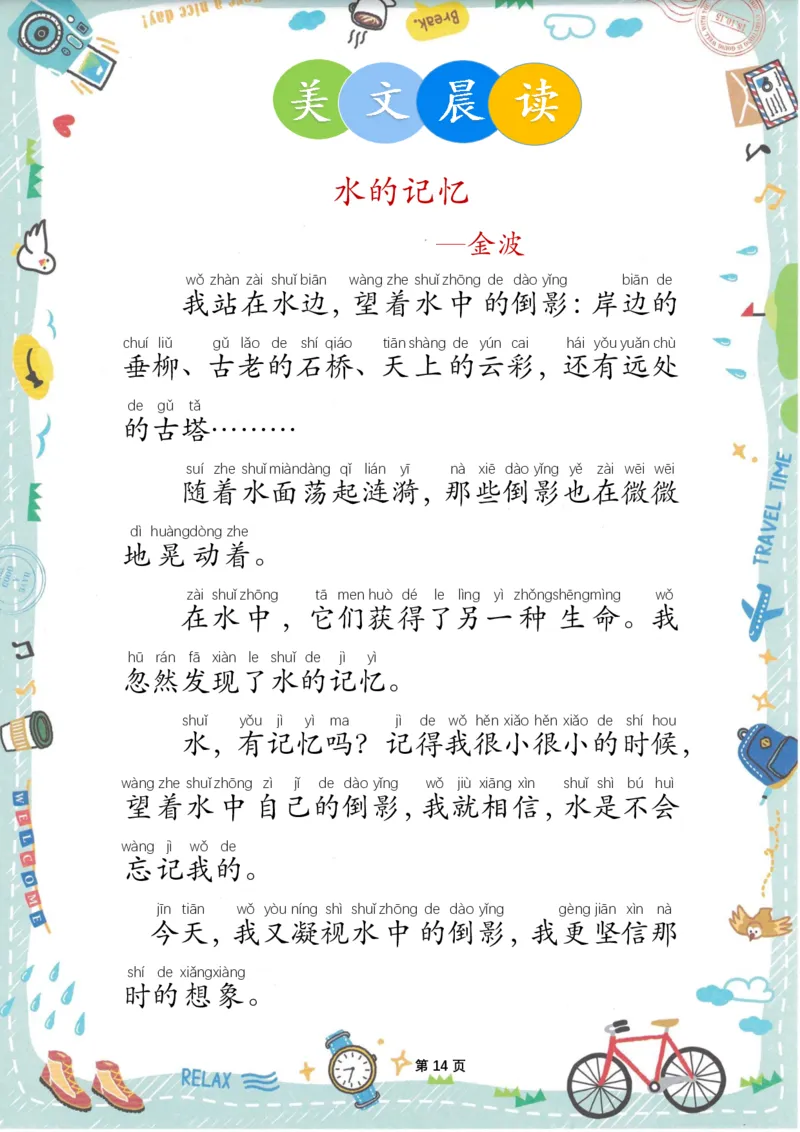 Have a nice day!
Break.
18.10.15
美文晨读
水的记忆
—金波
wǒ zhàn zài shuǐ biān wàng zhe shuǐ zhōng de dào yǐng biān de
我站在水边，望着水中的倒影：岸边的
chuí liǔ gǔ lǎo de shí qiáo tiān shàng de yún cai hái yǒu yuǎn chù
垂柳、古老的石桥、天上的云彩，还有远处
de gǔ tǎ
的古塔………
suí zhe shuǐ miàn dàng qǐ lián yī nà xiē dào yǐng yě zài wēi wēi
随着水面荡起涟漪，那些倒影也在微微
dì huàng dòng zhe
地晃动着。
zài shuǐ zhōng tā men huò dé le lìng yì zhǒng shēng mìng wǒ
在水中，它们获得了另一种生命。我
hū rán fā xiàn le shuǐ de jì yì
忽然发现了水的记忆。
shuǐ yǒu jì yì ma jì de wǒ hěn xiǎo hěn xiǎo de shí hou
水，有记忆吗？记得我很小很小的时候，
wàng zhe shuǐ zhōng zì jǐ de dào yǐng wǒ jiù xiāng xìn shuǐ shì bú huì
望着水中自己的倒影，我就相信，水是不会
wàng jì wǒ de
忘记我的。
jīn tiān wǒ yòu níng shì shuǐ zhōng de dào yǐng wǒ gèng jiān xìn nà
今天，我又凝视水中的倒影，我更坚信那
shí de xiǎng xiàng
时的想象。
TRAVEL TIME
WELCOME
RELAX
第 14 页